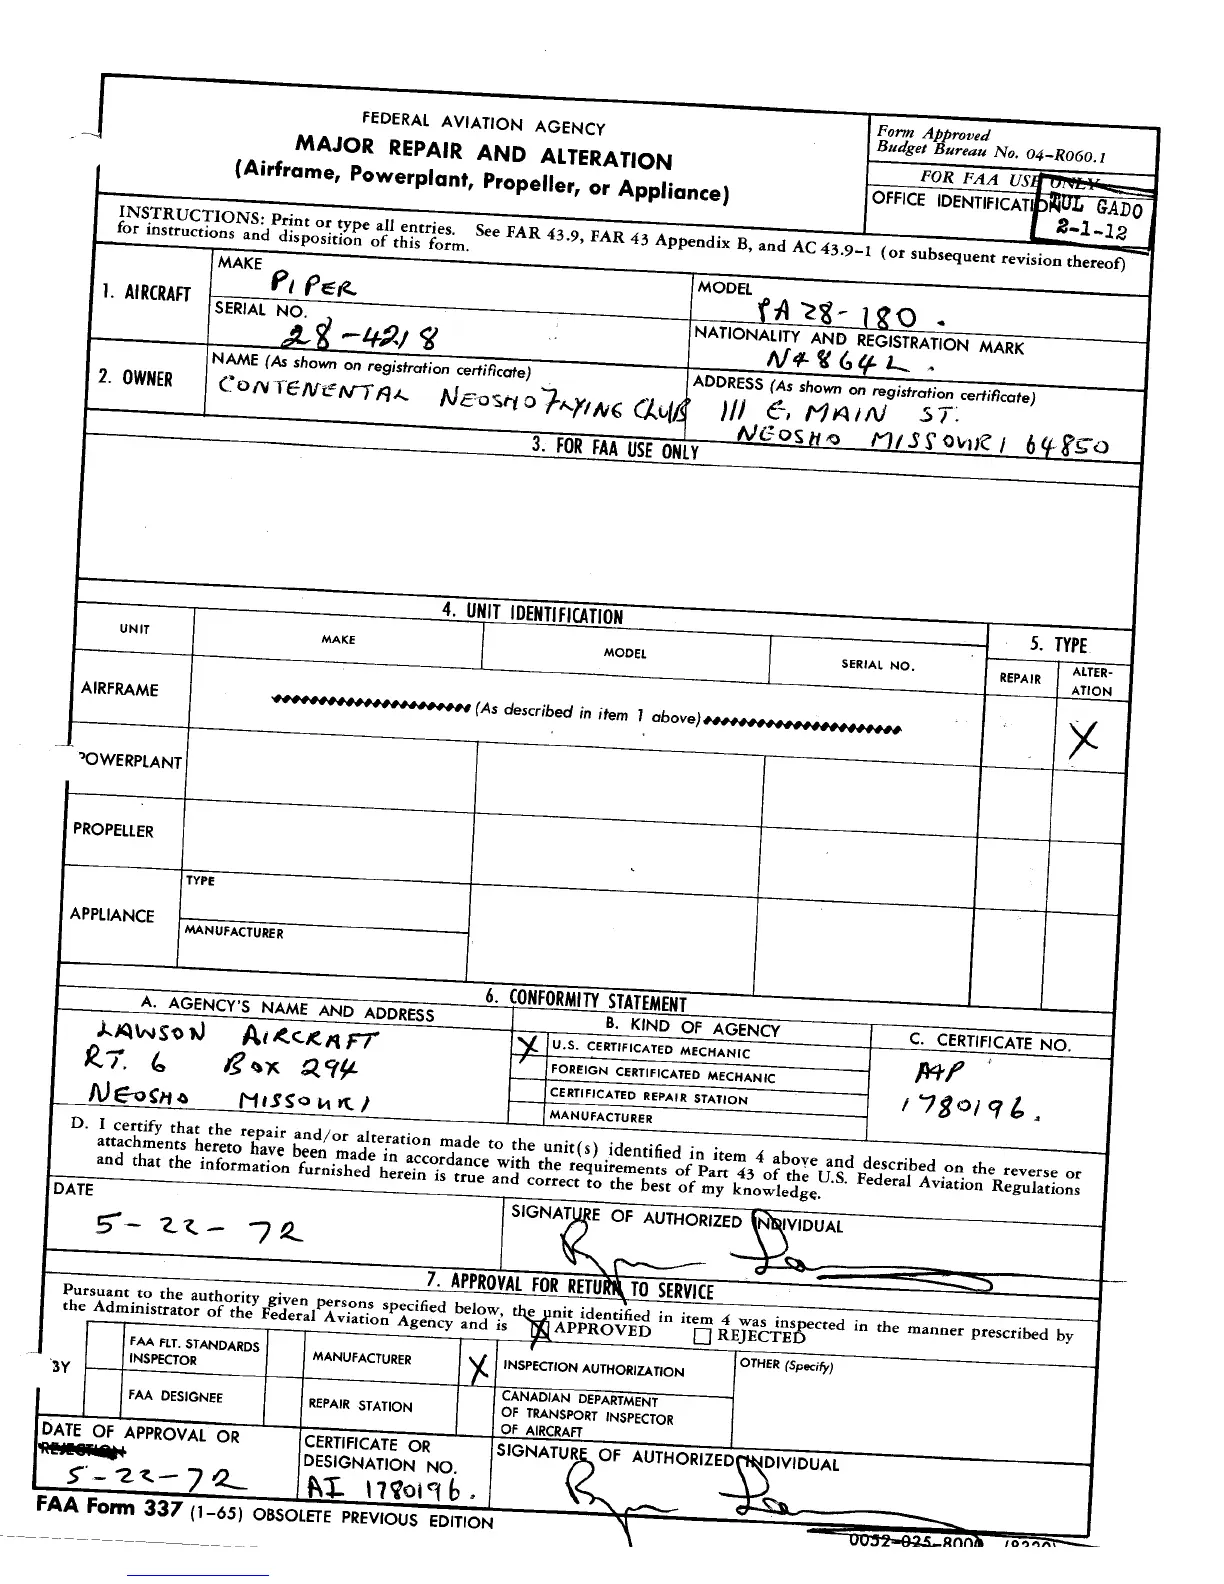 FEDERAL AVIATION AGENCY
MAJOR REPAIR AND ALTERATION
(Airframe, Powerplant, Propeller, or Appliance)
Form Approved
Budget Bureau No. 04-R060.1
FOR FAA USE ONLY
OFFICE IDENTIFICATION
GADO
2-1-12
INSTRUCTIONS: Print or type all entries. See FAR 43.9, FAR 43 Appendix B, and AC 43.9-1 (or subsequent revision thereof)
for instructions and disposition of this form.
1. AIRCRAFT
MAKE
PIPER
MODEL
PA 28-180.
SERIAL NO.
28-4218
NATIONALITY AND REGISTRATION MARK
N4864L.
2. OWNER
NAME (As shown on registration certificate)
CONTENENTAL NEOSHO FLYING CLUB
ADDRESS (As shown on registration certificate)
111 E. MAIN ST.
NEOSHO MISSOURI 64850
3. FOR FAA USE ONLY
4. UNIT IDENTIFICATION
5. TYPE
UNIT
MAKE
MODEL
SERIAL NO.
REPAIR
ALTER-
ATION
AIRFRAME
(As described in item 1 above)
X
POWERPLANT
PROPELLER
APPLIANCE
TYPE
MANUFACTURER
6. CONFORMITY STATEMENT
A. AGENCY'S NAME AND ADDRESS
B. KIND OF AGENCY
C. CERTIFICATE NO.
LAWSON AIRCRAFT
RT. 6 BOX 294
NEOSHO MISSOURI
X U.S. CERTIFICATED MECHANIC
FOREIGN CERTIFICATED MECHANIC
CERTIFICATED REPAIR STATION
MANUFACTURER
A+P
1780196.
D. I certify that the repair and/or alteration made to the unit(s) identified in item 4 above and described on the reverse or
attachments hereto have been made in accordance with the requirements of Part 43 of the U.S. Federal Aviation Regulations
and that the information furnished herein is true and correct to the best of my knowledge.
DATE
5-22-72
SIGNATURE OF AUTHORIZED INDIVIDUAL
7. APPROVAL FOR RETURN TO SERVICE
Pursuant to the authority given persons specified below, the unit identified in item 4 was inspected in the manner prescribed by
the Administrator of the Federal Aviation Agency and is X APPROVED REJECTED
BY
FAA FLT. STANDARDS
INSPECTOR
MANUFACTURER
X INSPECTION AUTHORIZATION
OTHER (Specify)
FAA DESIGNEE
REPAIR STATION
CANADIAN DEPARTMENT
OF TRANSPORT INSPECTOR
OF AIRCRAFT
DATE OF APPROVAL OR
REJECTION
5-22-72
CERTIFICATE OR
DESIGNATION NO.
AI 1780196.
SIGNATURE OF AUTHORIZED INDIVIDUAL
FAA Form 337 (1-65) OBSOLETE PREVIOUS EDITION